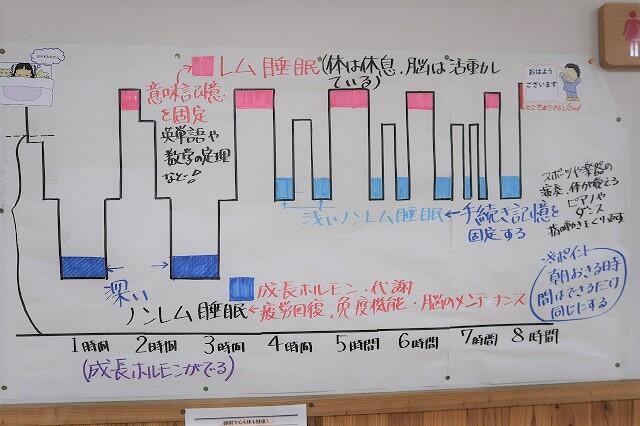 おやすみなさい
レム睡眠(体は休息、脳は活動している)
意味記憶
を固定
英単語や
数学の定理
など…!
おはよう
ございます
浅いノンレム睡眠
←手続き記憶を
固定する
スポーツや楽器の
演奏、体が覚える
ピアノや
ダンス
深い
ノンレム睡眠
成長ホルモン・代謝
疲労回復、免疫機能・脳のメンテナンス
※ポイント
朝おきる時
間はできるだけ
同じにする
1時間 2時間 3時間 4時間 5時間 6時間 7時間 8時間
(成長ホルモンがでる)